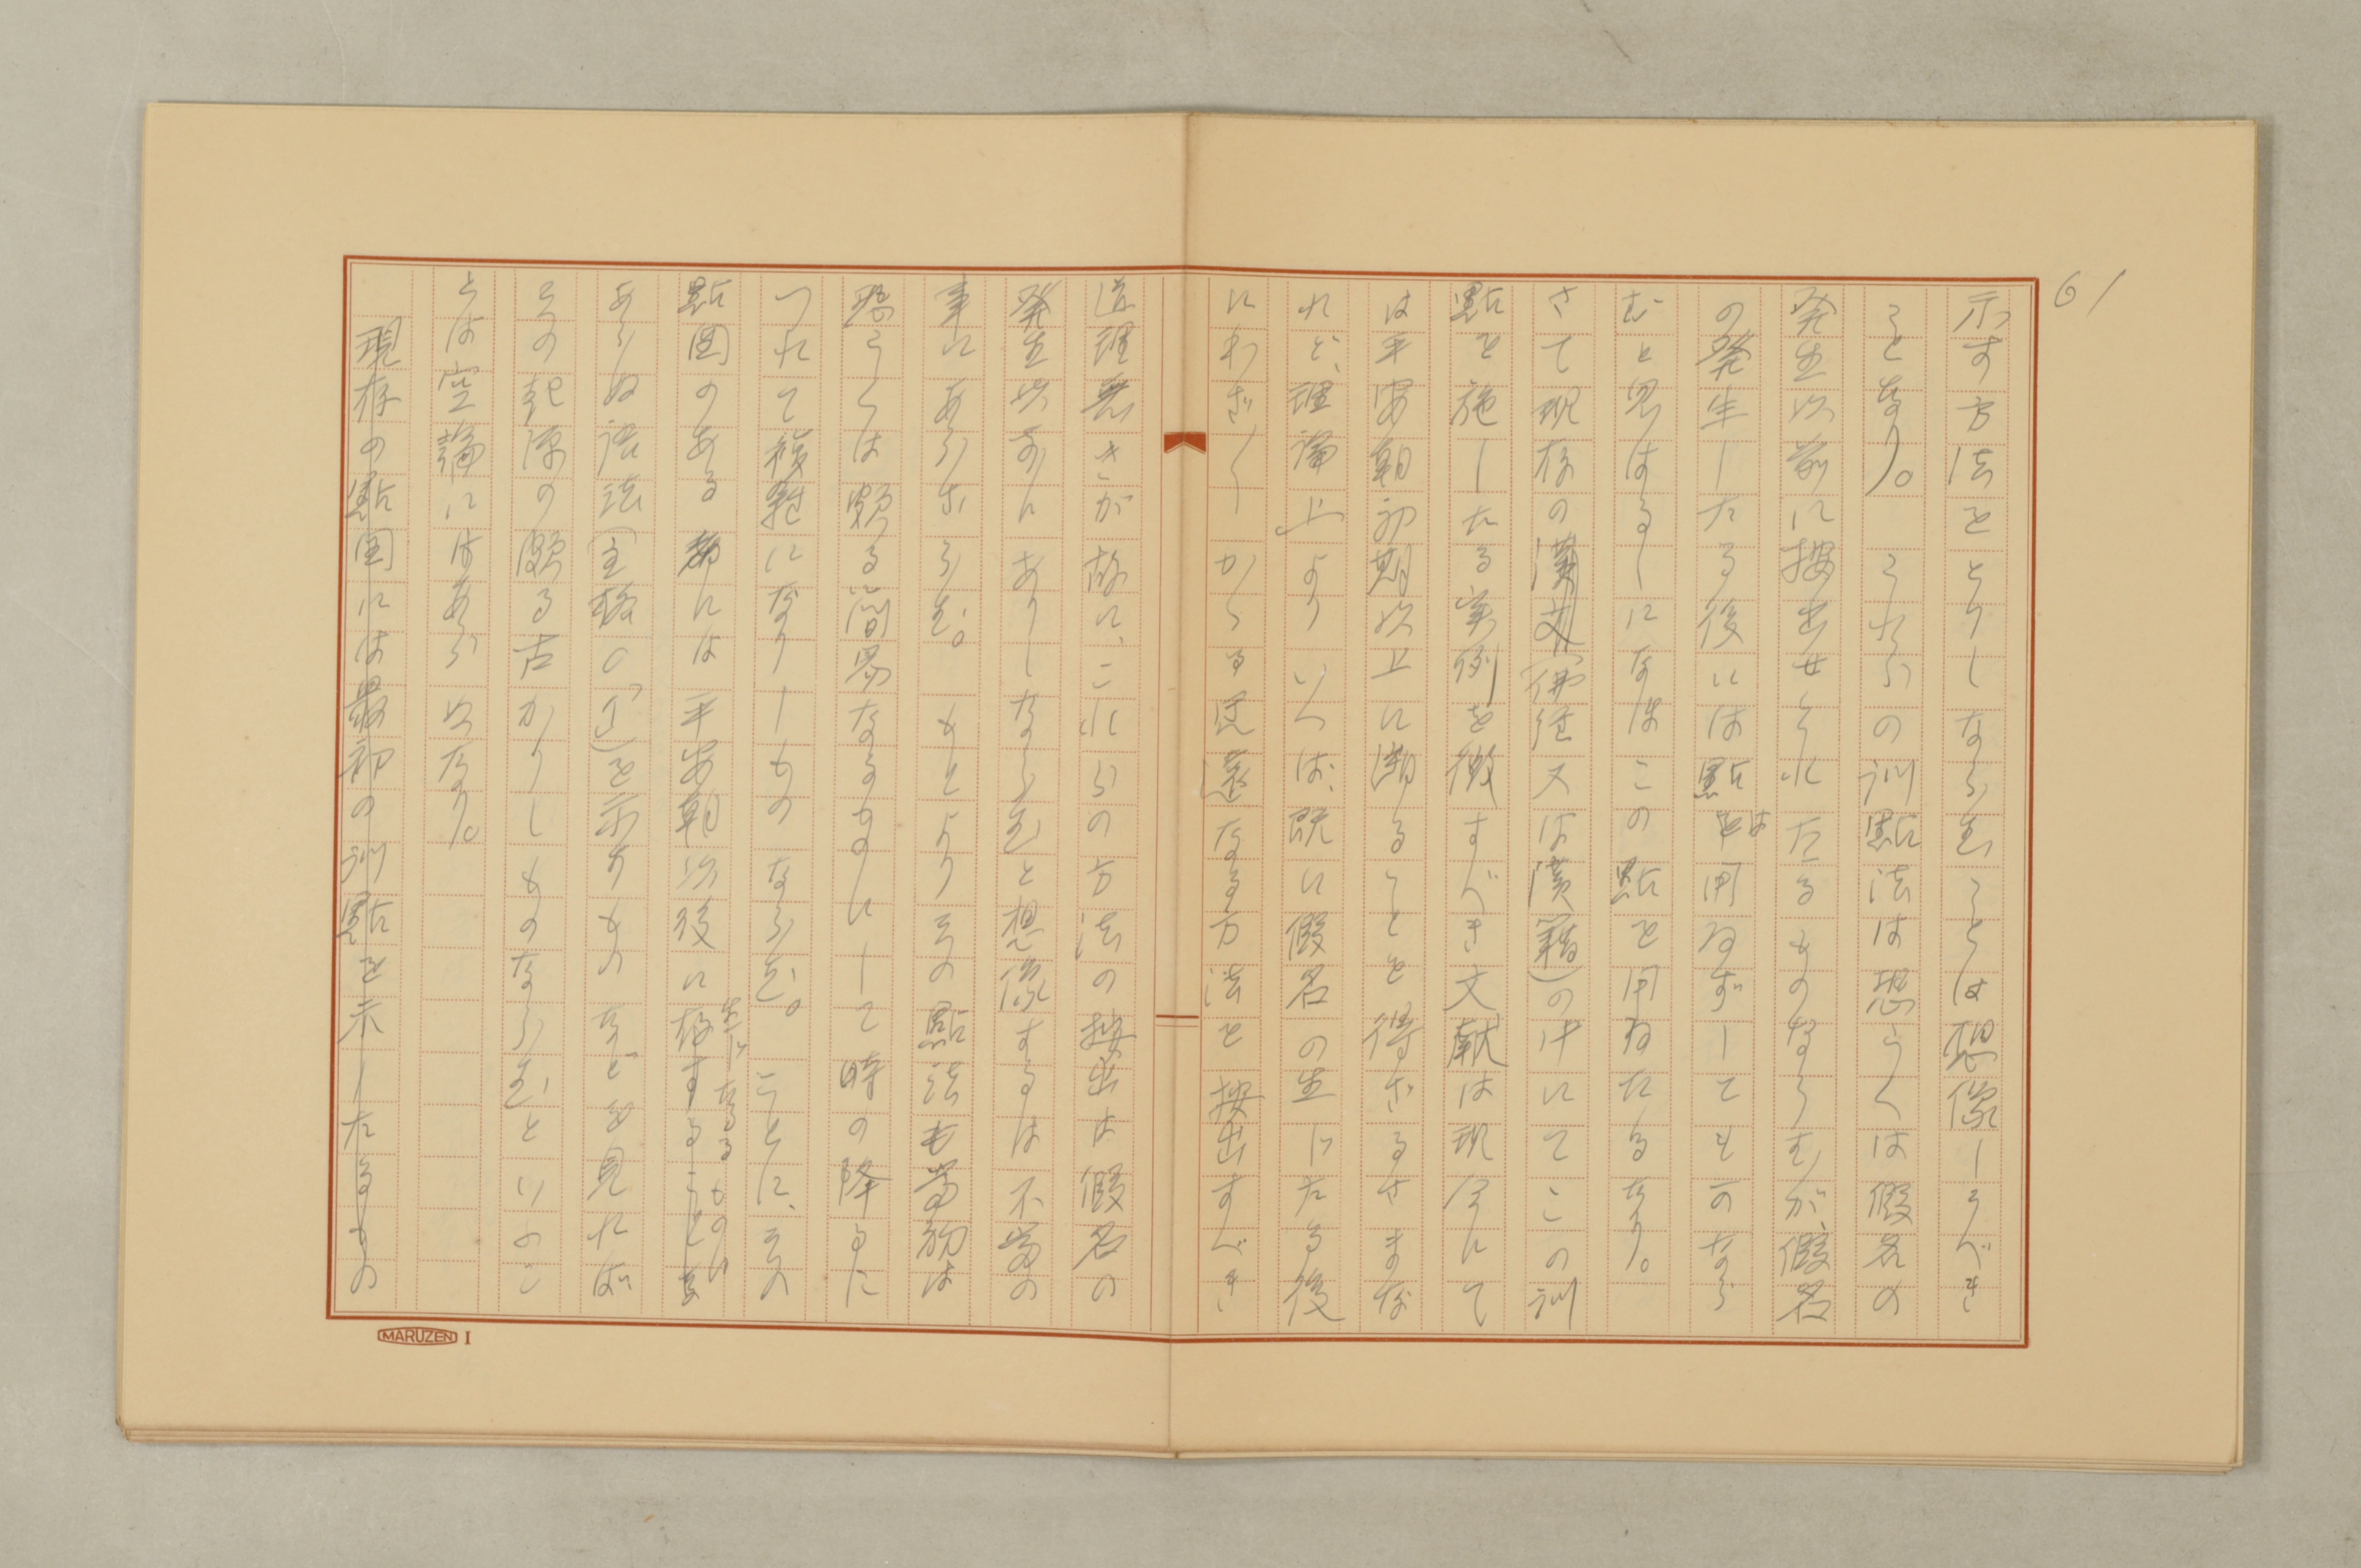 61
示す方法をとりしならむことは想像しうべき
ことなり。これらの訓點法は恐らくは假名の
発生以前に按出せられたるものならむが、假名
の発生したる後には點は用ゐずしても可なら
むと思はるゝになほこの點を用ゐたるなり。
さて現存の漢文(佛経又は漢籍)の中にてこの訓
點を施したる実例を徴すべき文献は現今にて
は平安朝初期以上に溯ることを得ざるさまな
れど、理論上よりいへば、既に假名の生じたる後
にわざ〱かゝる迂遠なる方法を按出すべき
道理無きが故に、これらの方法の按出は假名の
発生以前にありしならむと想像するは不當の
事にあらざらむ。もとよりその點法も當初は
恐らくは頗る簡易なるものにして時の降るに
つれて複雑になりしものならむ。ことに、その
點図のある都には平安朝以後に生じたるものに
あらぬ語法(主格の「イ」)を示すものなどを見れば
その起源の頗る古かりしものならむといふこ
とは空論にはあらぬなり。
現存の點図には最初の訓點を示したるもの
MARUZEN I